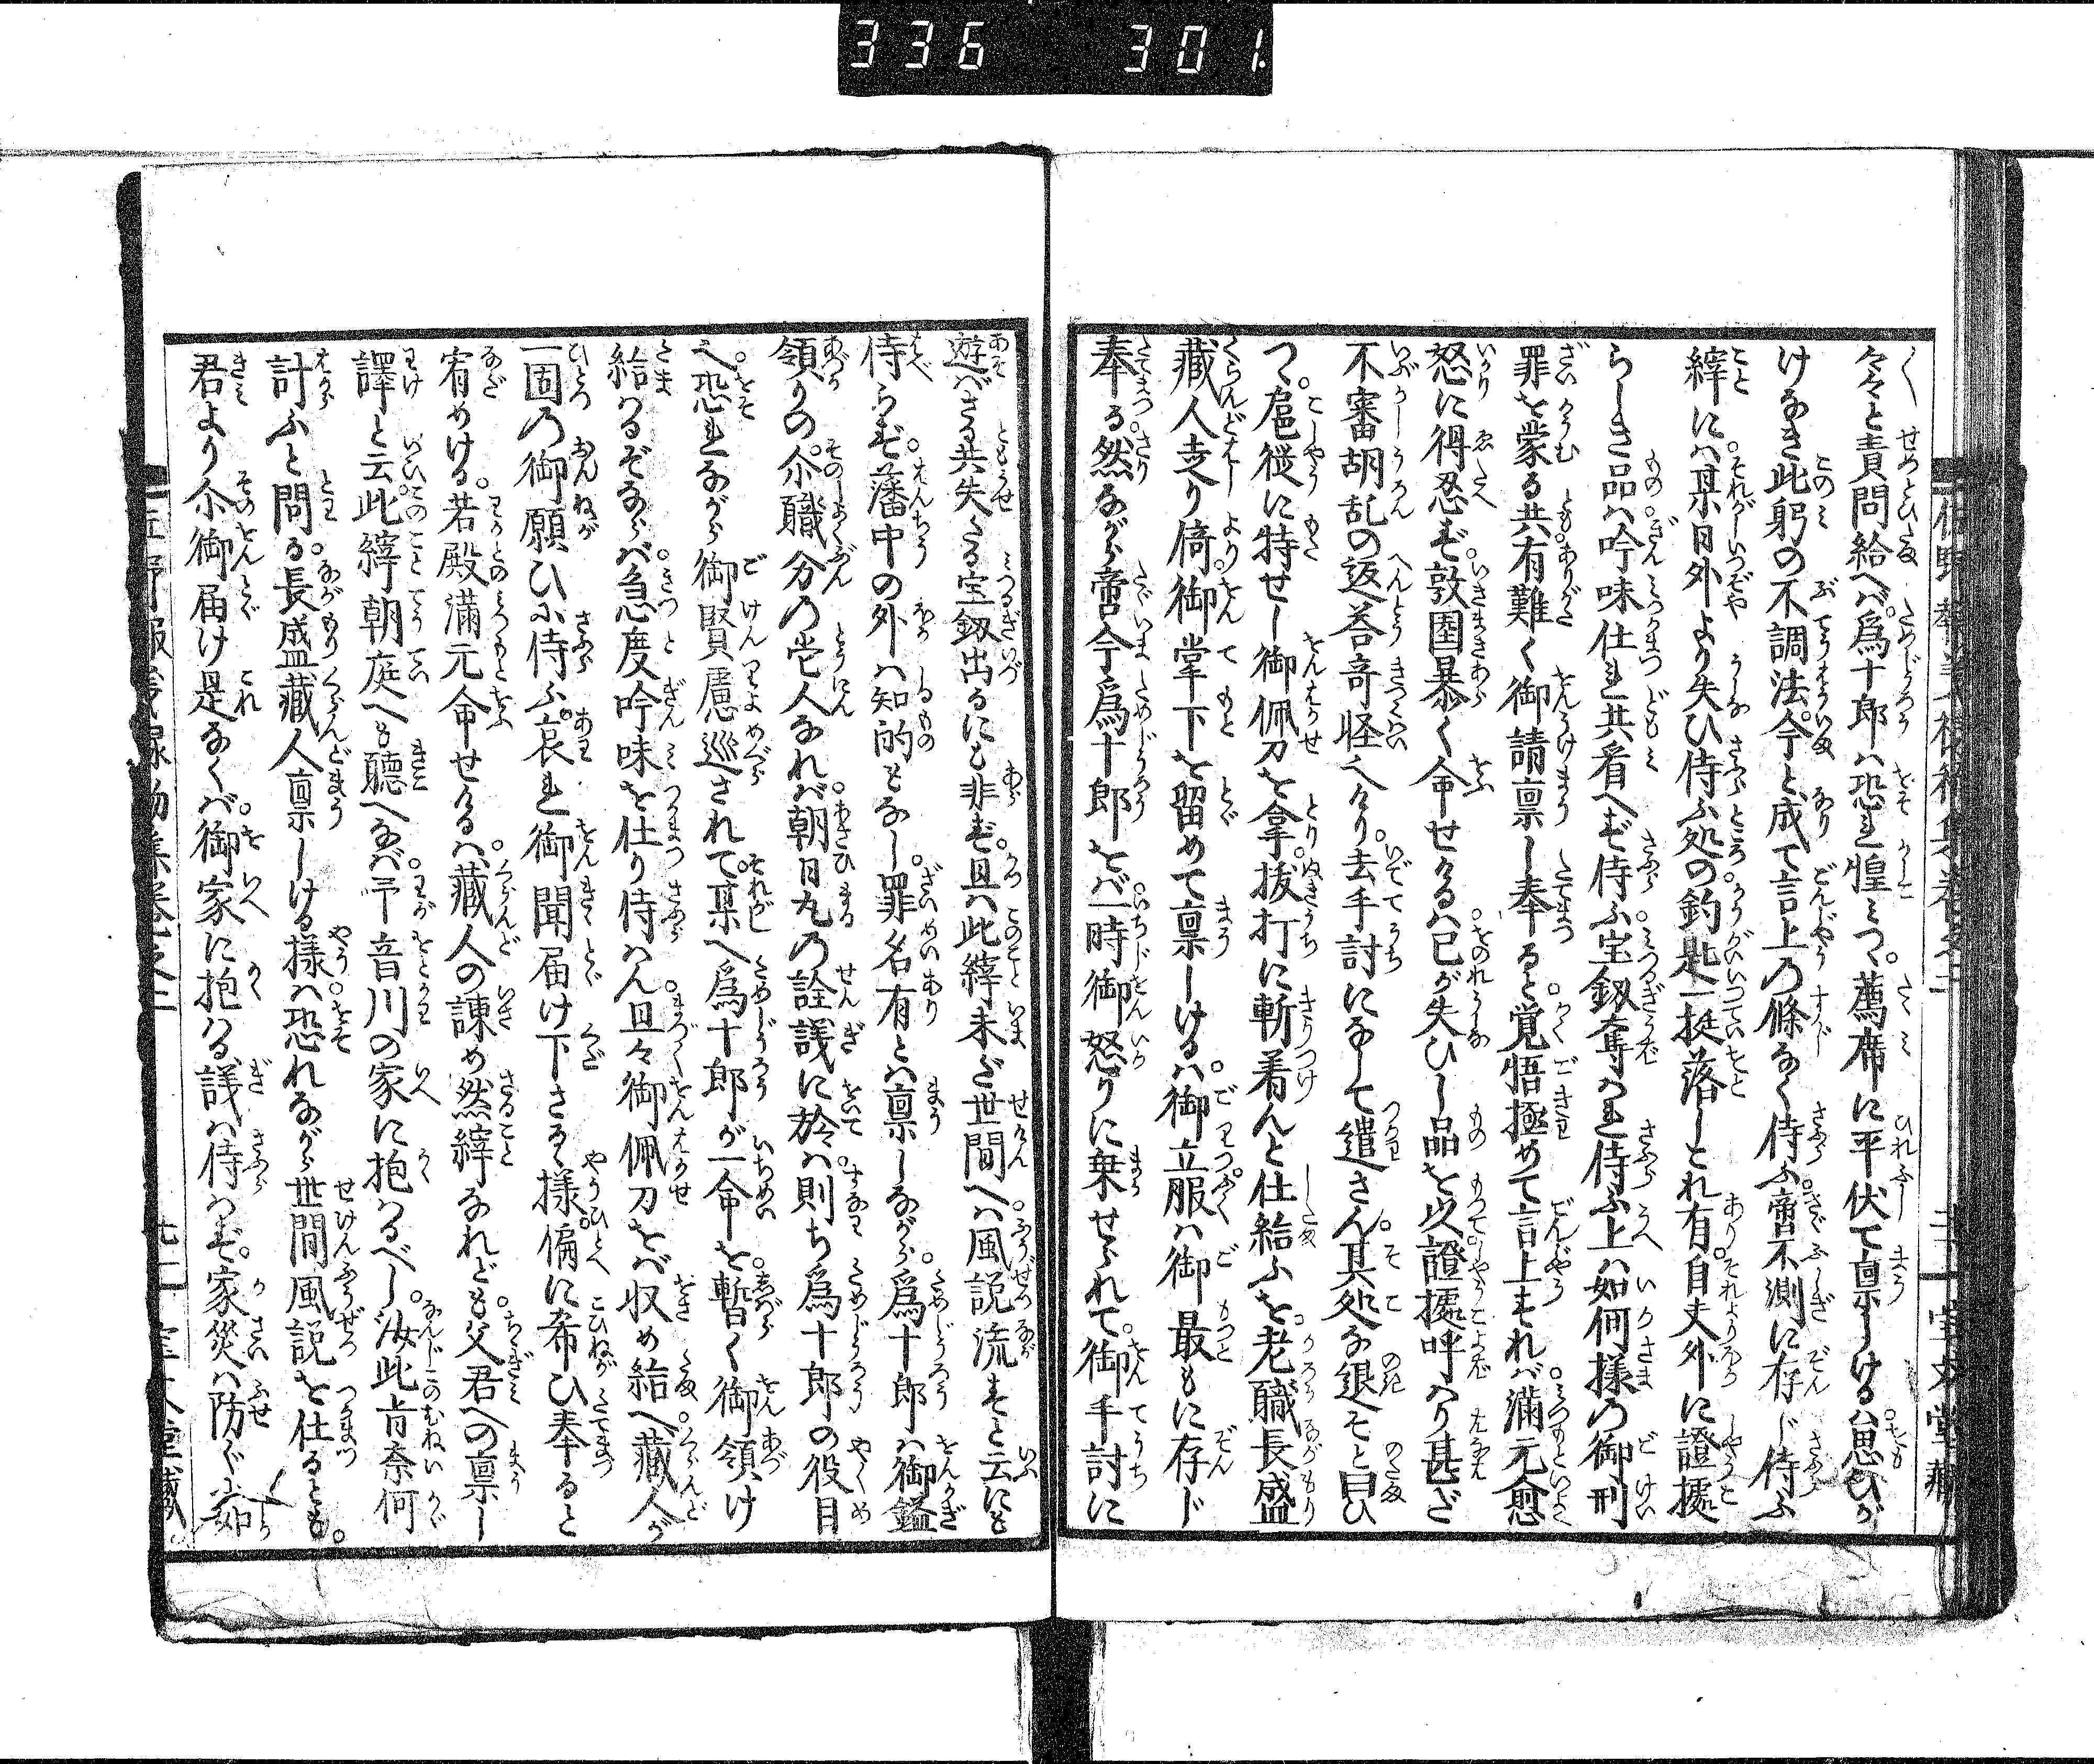 336 301
々々と責問給へば。為十郎は恐れ惶みつ。薦席に平伏て稟しけるは。思ひが
けなき此躬の不調法。今と成て言上の條なく侍ふ。啻不測に存じ侍ふ
縡には。某日外より失ひ侍ふ処の釣匙一挺落しとれ有。自夫外に證據
らしき品は。吟味仕れ共看へず侍ふ。宝釼奪はれ侍ふ上は如何様の御刑
罪を蒙る共。有難く御請稟し奉ると。覚悟極めて言上すれば。満元愈
怒に得忍ず。敦圉暴く命せけるは。己が失ひし品を以。證據呼はり甚だ
不審胡乱の返答奇怪へけり。去手討になして遣さん。其処な退そと曰ひ
つ。扈従に持せし御佩刀を拿。抜打に斬着んと仕給ふを。老職長盛
蔵人走り倚。御掌下を留めて稟しけるは。御立服は御最もに存じ
奉る。然ながら啻今為十郎をば。一時御怒りに乗せられて。御手討に
遊ばさる共。失たる宝釼出るにも非ず。且は此縡未だ世間へは。風説流すと云にも
侍らず。藩中の外は知的もなし。罪名有とは稟しながら。為十郎は御鑑
領りの。尒職分の当人なれば。朝日丸の詮議に於ては。則ち為十郎の役目
へ。恐れながら御賢慮巡されて。某へ為十郎が一命を。暫く御領け
給はるぞならば。急度吟味を仕り侍はん。且々御佩刀をば収め給へ。蔵人が
一固の御願ひに侍ふ。哀れ御聞届け下さる様。偏に希ひ奉ると
宥めける。若殿満元命せけるは。蔵人の諫め然縡なれども。父君への稟し
譯と云。此縡朝庭へも聴へなば。予音川の家に抱はるべし。汝此旨奈何
計ふと問る。長盛蔵人稟しける様は。恐れながら世間風説を仕るとも。
君より尒御届け是なくば。御家に抱はる議は侍はず。家災は防ぐに如